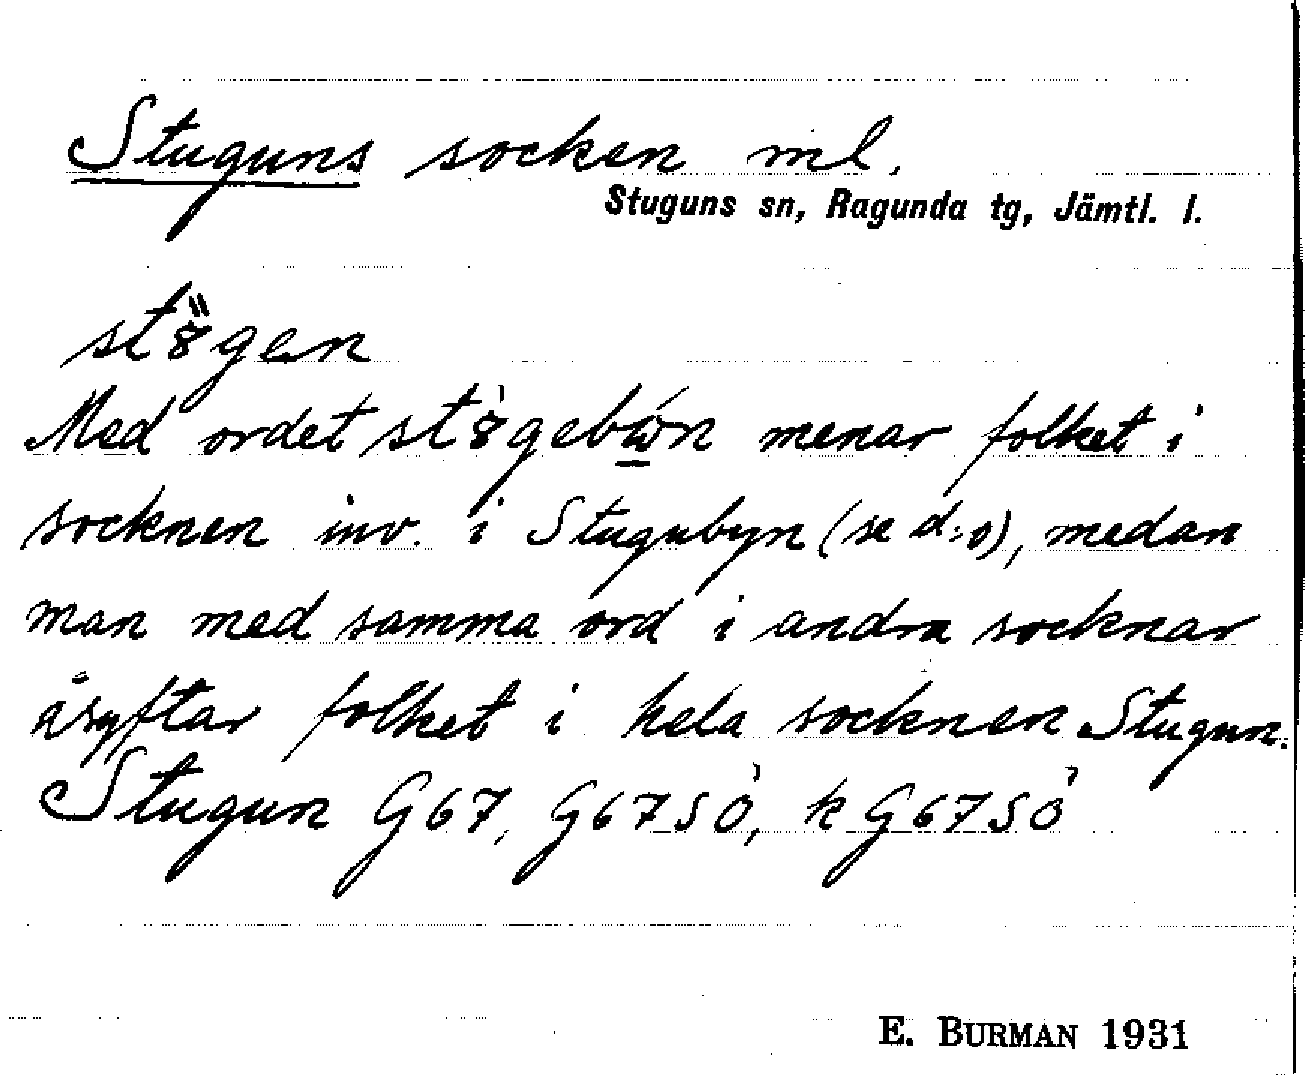 Stuguns socken ml.
Stuguns sn, Ragunda tg, Jämtl. l.
Med ordet menar folket i
socknen inv. i Stugubyn (se d:o), medan
man med samma ord i andra socknar
åsyftar folket i hela socknen Stugun.
Stugun G67, G67SÖ, k G67SÖ
E. BURMAN 1931